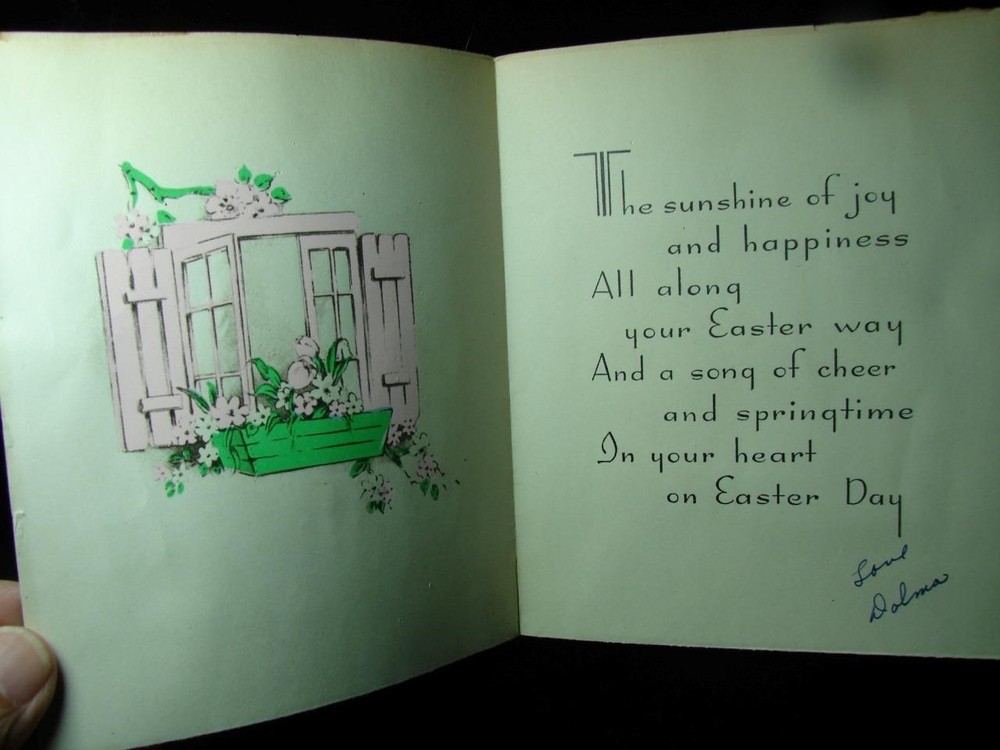 The sunshine of joy
and happiness
All along
your Easter way
And a song of cheer
and springtime
In your heart
on Easter Day
Love
Dolma